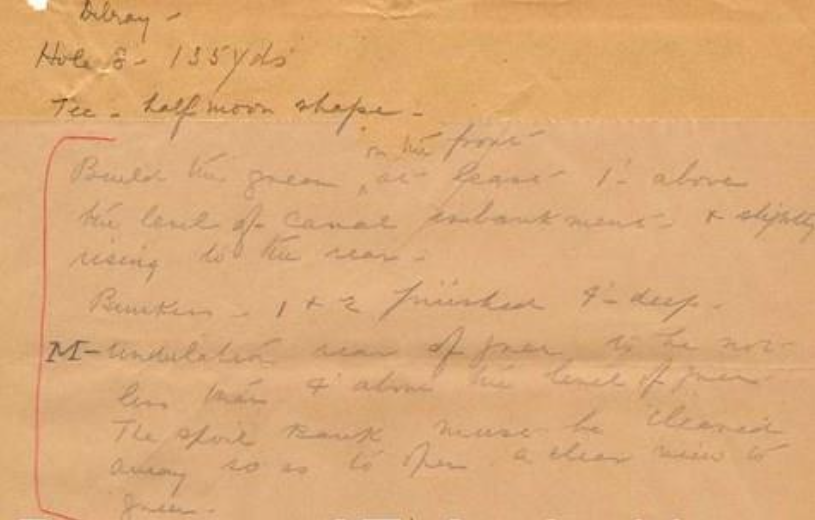 Delray -
Hole 8 - 135 Yds
Tee - half moon shape -
on the front
Build the green, at least 1' above
the level of canal embankment - & slightly
rising to the rear -
Bunkers - 1 & 2 finished 4' deep -
M - Undulation rear of green to be not
less than 4' above the level of green
The spoil Bank must be cleared
away so as to open a clear view to
green -